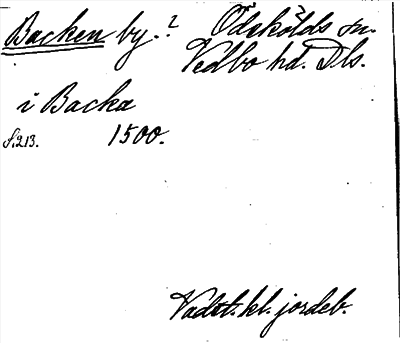 Backen by.? Ödskölds sn.
Vedbo hd. Dls.
i Backa
s. 213. 1500.
Vadst. kl. jordeb.